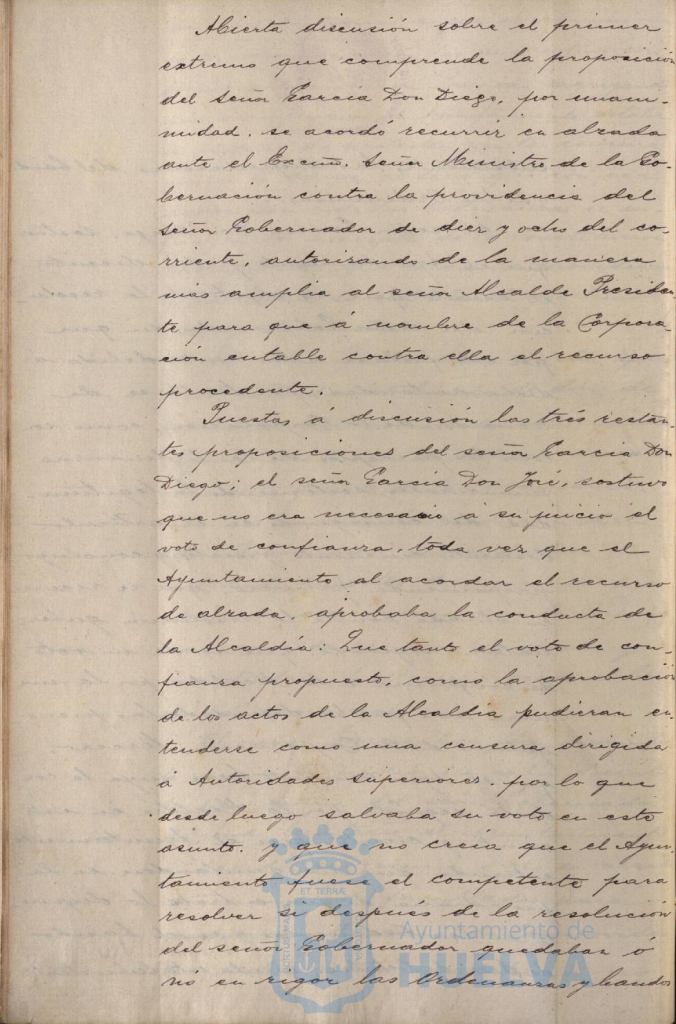 Abierta discusión sobre el primer
extremo que comprende la proposición
del señor García Don Diego, por unani-
midad, se acordó recurrir en alzada
ante el Excmo. Señor Ministro de la Go-
bernación contra la providencia del
señor Gobernador de diez y ocho del co-
rriente, autorizando de la manera
mas amplia al señor Alcalde Presiden-
te para que á nombre de la Corpora-
ción entable contra ella el recurso
procedente.
Puestas á discusión las trés restan-
tes proposiciones del señor García Don
Diego; el señor García Don José, sostuvo
que no era necesario á su juicio el
voto de confianza, toda vez que el
Ayuntamiento al acordar el recurso
de alzada, aprobaba la conducta de
la Alcaldía: Que tanto el voto de con-
fianza propuesto, como la aprobación
de los actos de la Alcaldia pudieran en-
tenderse como una censura dirigida
á Autoridades superiores, por lo que
desde luego salvaba su voto en este
asunto, y que no creia que el Ayun-
tamiento fuese el competente para
resolver si después de la resolución
del señor Gobernador quedaban ó
nó en rigor las Ordenanzas y bandos
Ayuntamiento de
HUELVA